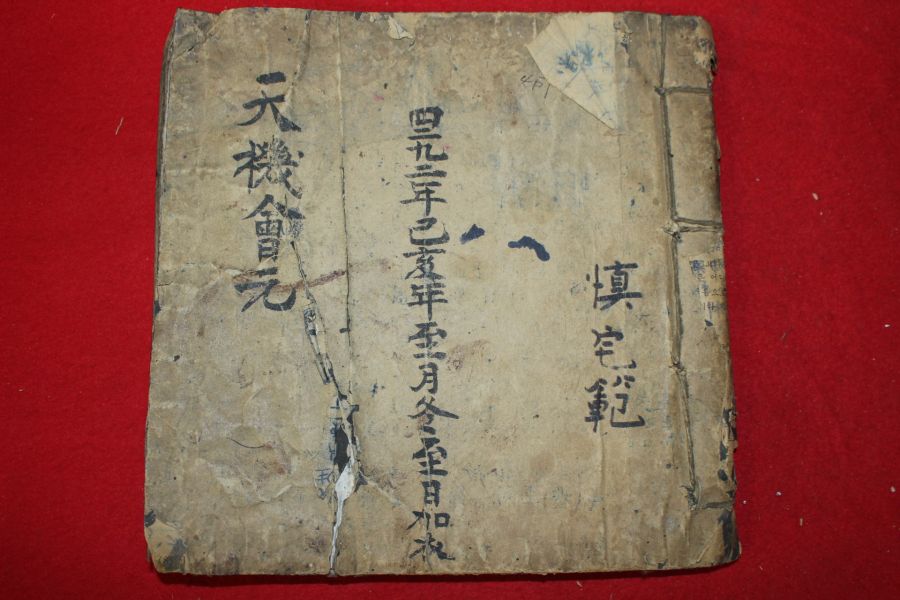 慎宅範
四二九二年己亥年至月冬至日加衣
天機會元